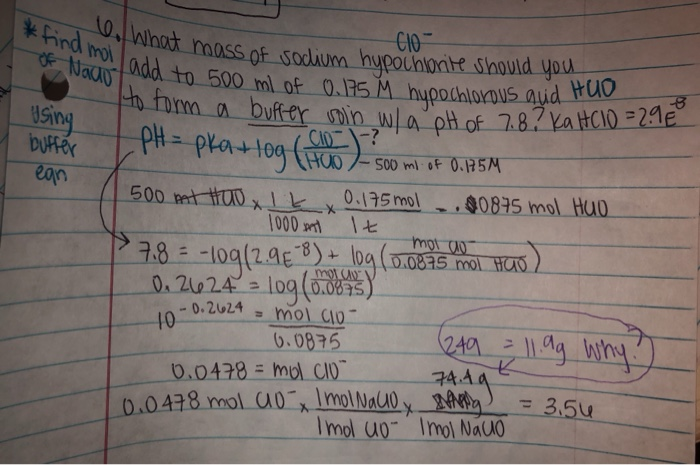 6. What mass of sodium hypochlorite should you
ClO⁻
add to 500 ml of 0.175 M hypochlorous acid HClO
to form a buffer soln w/ a pH of 7.8? Ka HClO = 2.9E⁻⁸
* find mol
of NaClO
Using
buffer
eqn
pH = pKa + log (ClO⁻/HClO) -?
- 500 ml of 0.175M
500 ml HClO × 1 L/1000 ml × 0.175 mol/1 L = .0875 mol HClO
7.8 = -log(2.9E⁻⁸) + log (mol ClO⁻/0.0875 mol HClO)
0.2624 = log (mol ClO⁻/0.0875)
10^-0.2624 = mol ClO⁻/0.0875
0.0478 = mol ClO⁻
249 = 11.9g Why?
0.0478 mol ClO⁻ × 1 mol NaClO/1 mol ClO⁻ × 74.4g/1 mol NaClO = 3.56